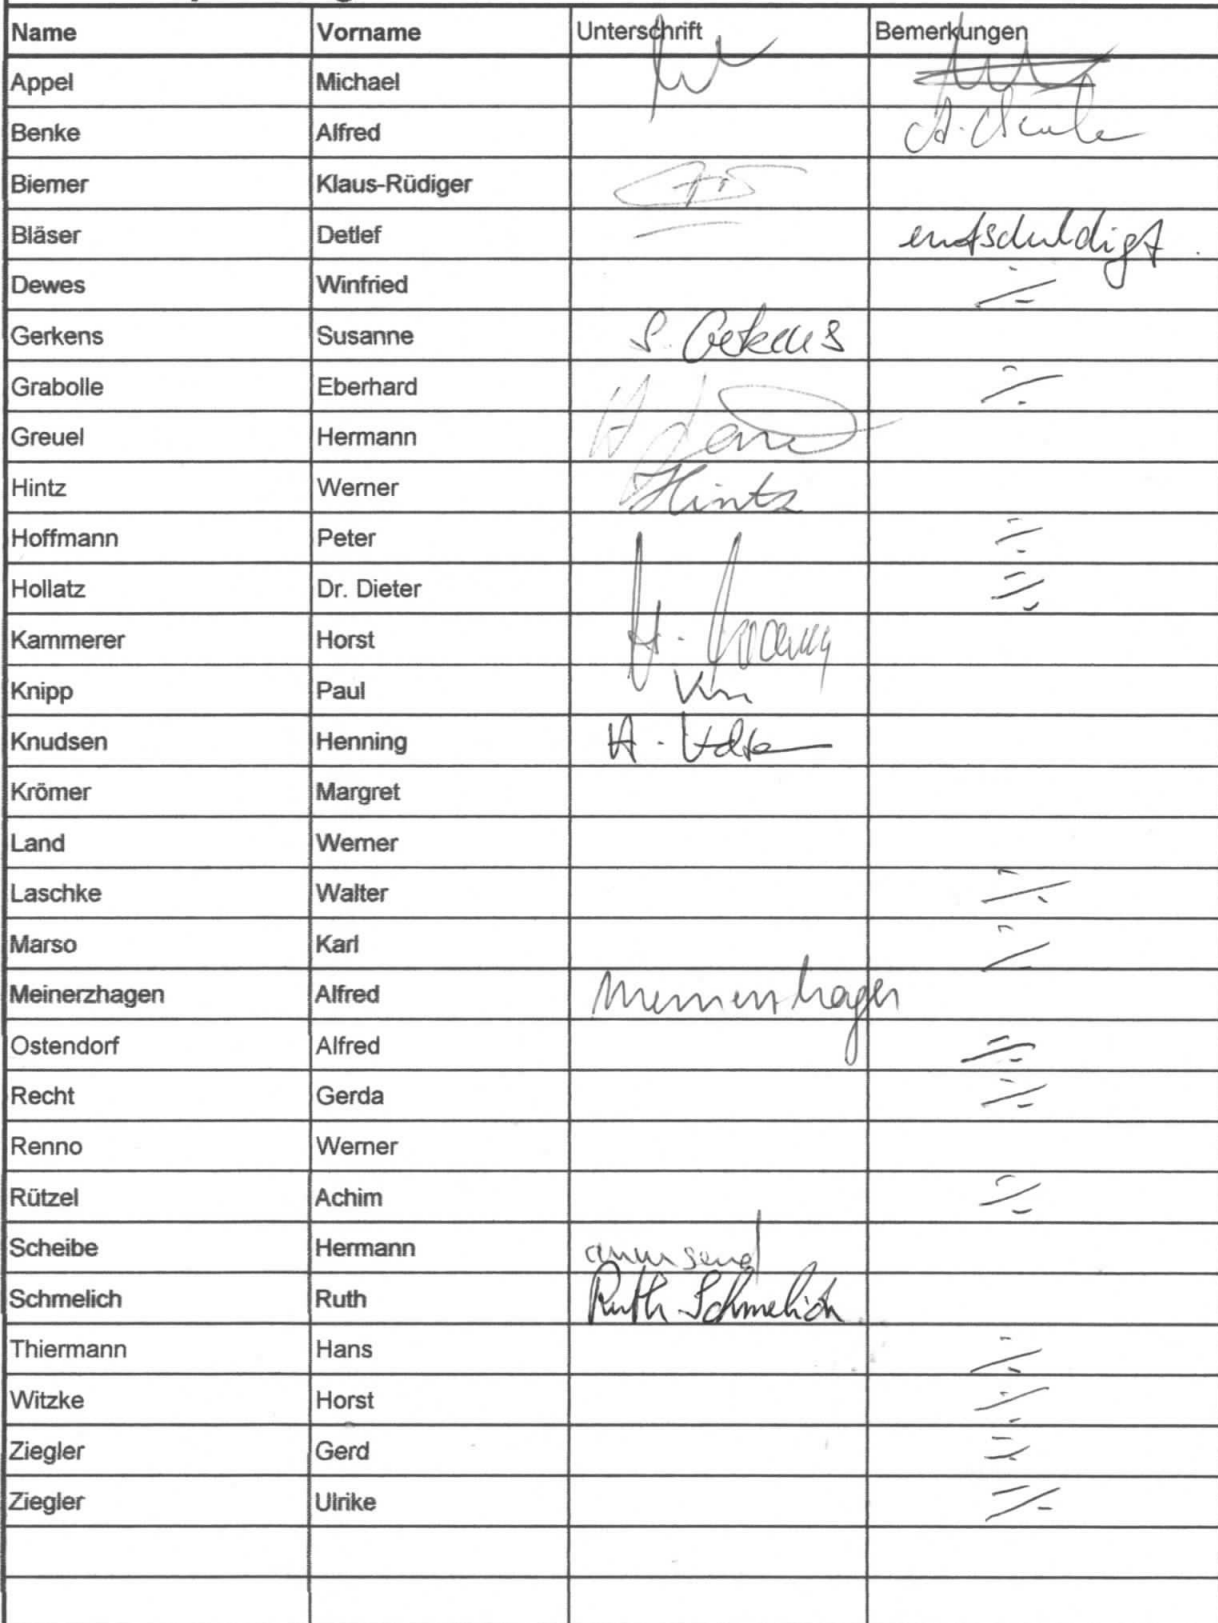 Name Vorname Unterschrift Bemerkungen
Appel Michael
Benke Alfred
Biemer Klaus-Rüdiger
Bläser Detlef entschuldigt.
Dewes Winfried
Gerkens Susanne S. Gerkens
Grabolle Eberhard
Greuel Hermann
Hintz Werner Hintz
Hoffmann Peter
Hollatz Dr. Dieter
Kammerer Horst
Knipp Paul
Knudsen Henning
Krömer Margret
Land Werner
Laschke Walter
Marso Karl
Meinerzhagen Alfred Meinerzhagen
Ostendorf Alfred
Recht Gerda
Renno Werner
Rützel Achim
Scheibe Hermann anwesend
Schmelich Ruth Ruth Schmelich
Thiermann Hans
Witzke Horst
Ziegler Gerd
Ziegler Ulrike